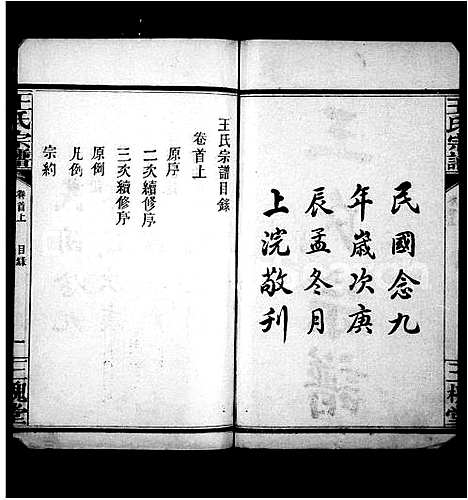 王氏宗譜
民國念九
年歲次庚
辰孟冬月
上浣敬刊
王氏宗譜目錄
卷首上
原序
二次續修序
三次續修序
原例
凡例
宗約
王氏宗譜
卷首上
目錄
一
三槐堂